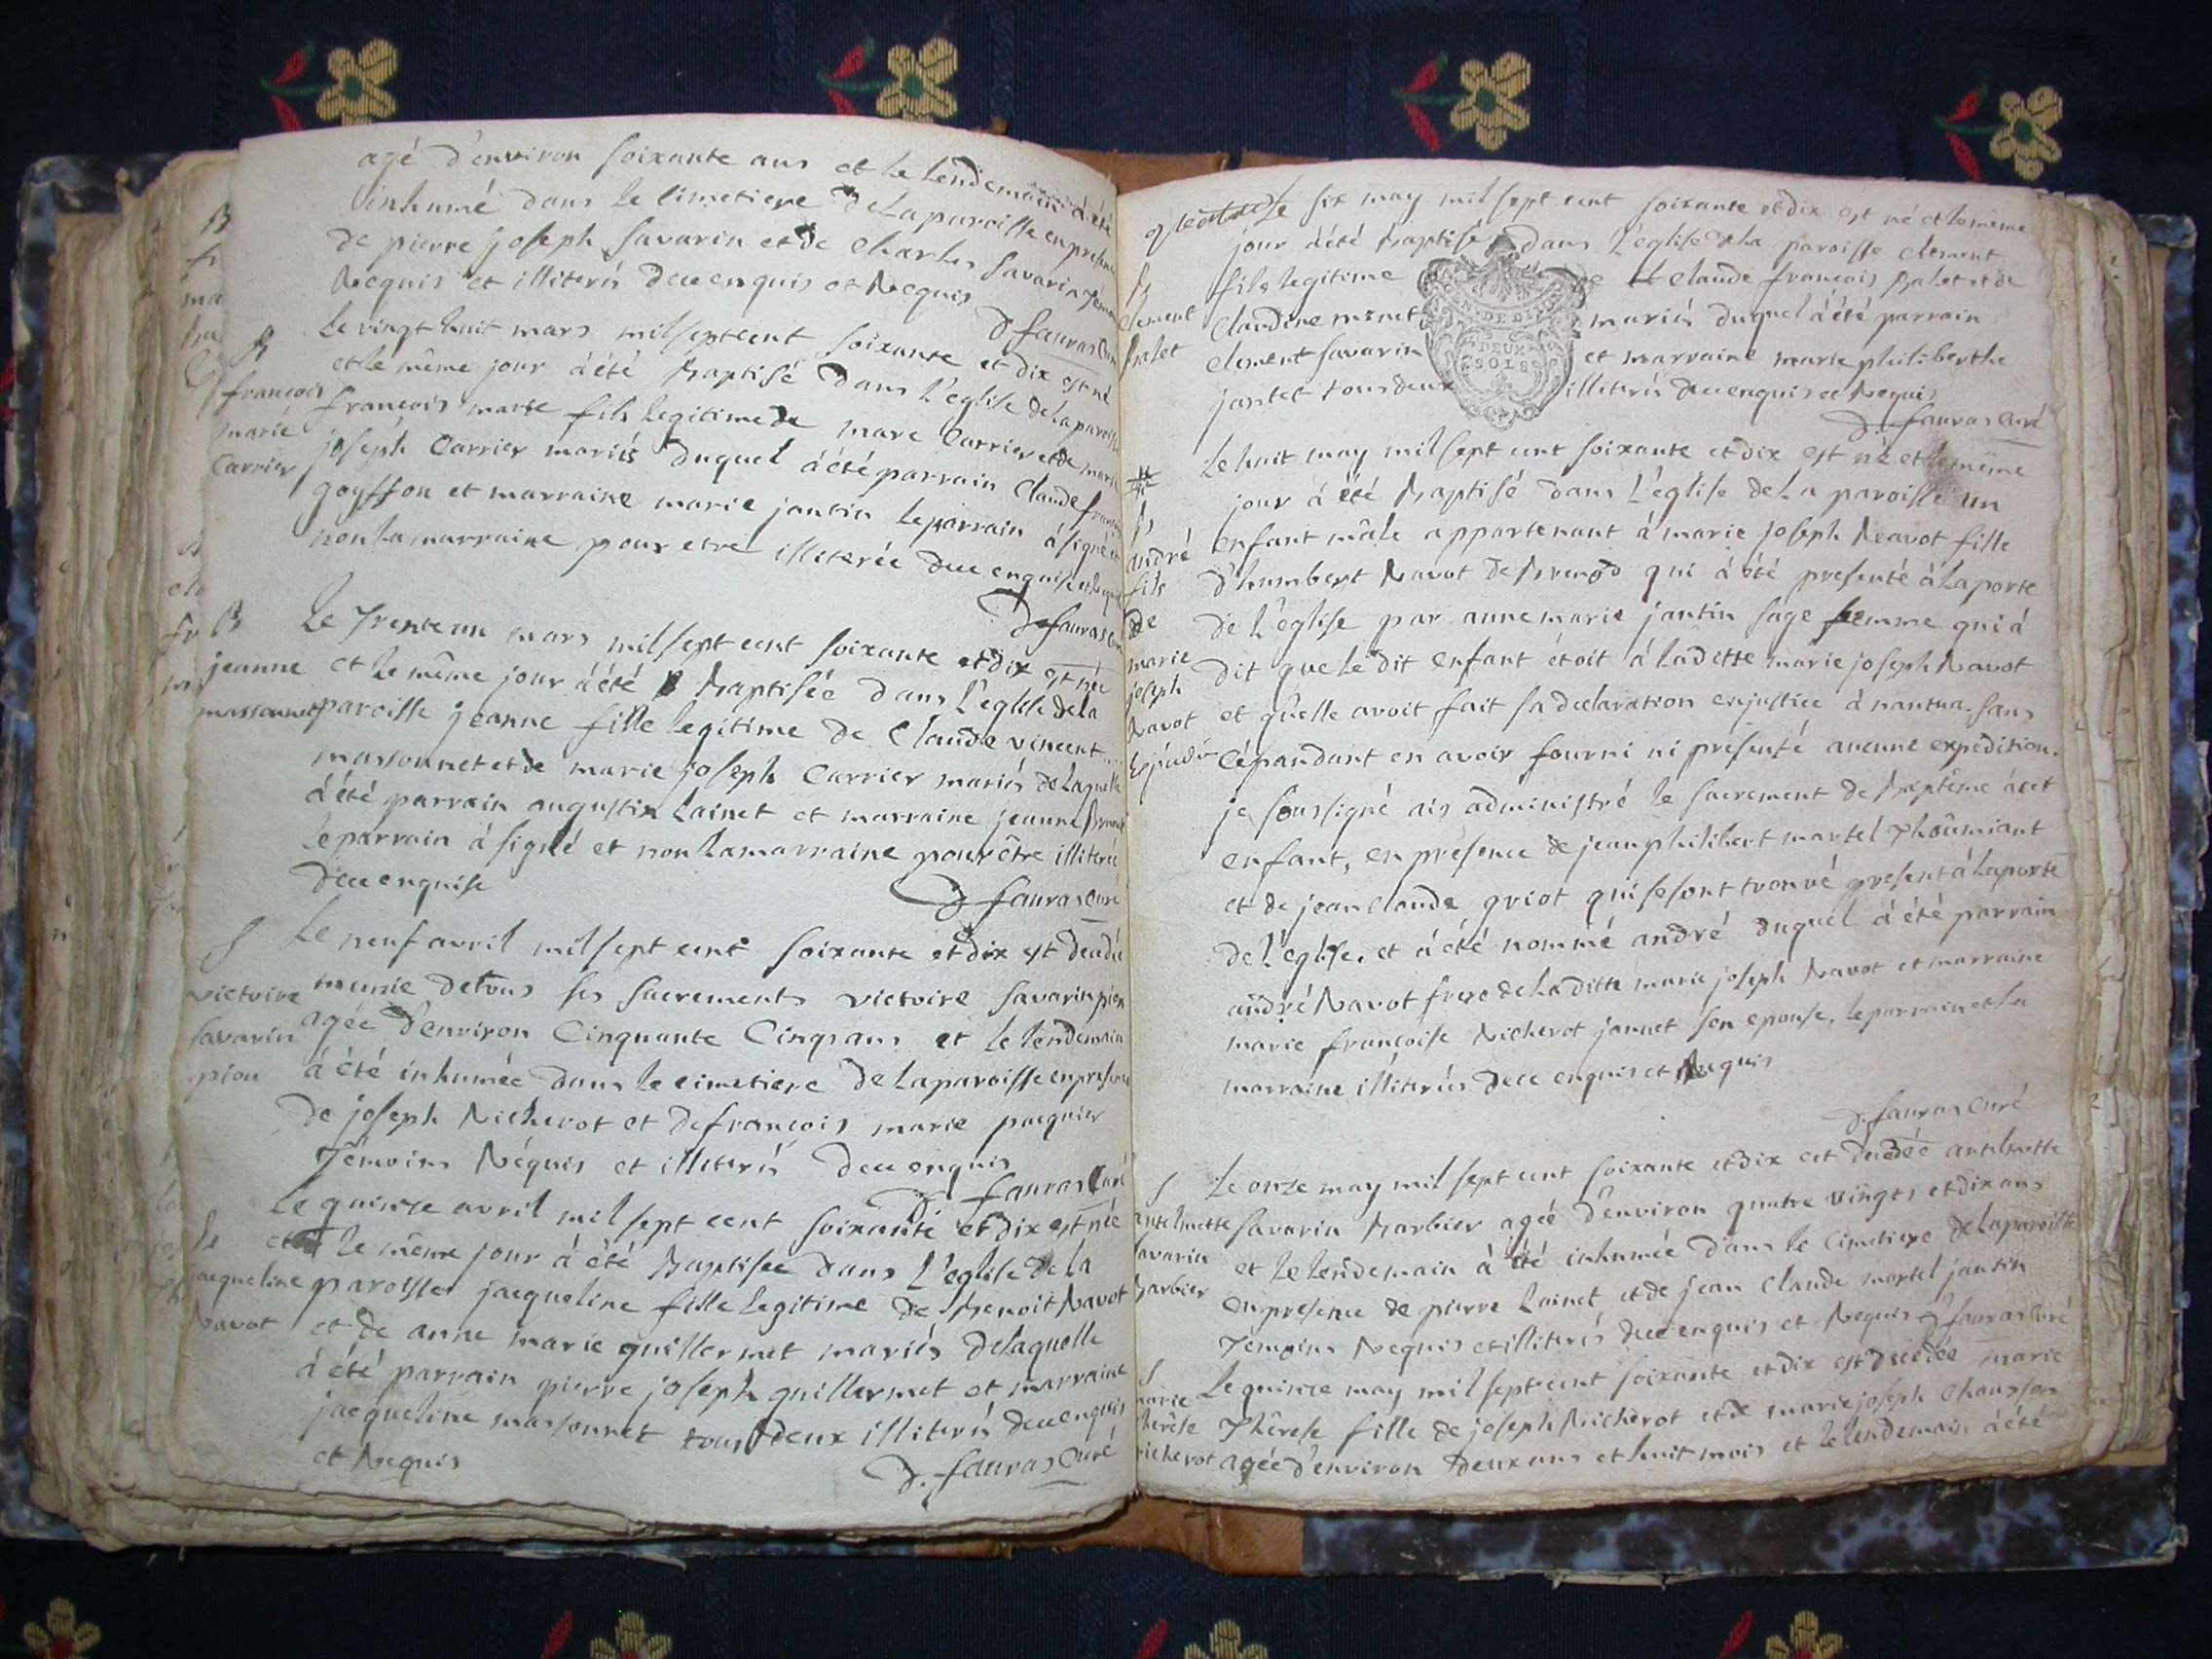 agé d'environ soixante ans et le lendemain à été
inhumé dans le cimetiere de la paroisse en presence
de pierre joseph savarin et de Charles savarin témoins
Requis et illiterés de ce enquis et Requis
D fauras Curé
B
françois
marie
Carrier
le vingt huit mars mil sept cent soixante et dix est né
et le même jour à été Baptisé dans l'eglise de la paroisse
françois marie fils legitime de marc Carrier et de marie
joseph Carrier mariés duquel à été parrain Claude françois
goyffon et marraine marie jantin le parrain à signé et
non la marraine pour etre illiterée de ce enquise et Requise
D fauras Curé
B
jeanne
massonnet
Le Trente un mars mil sept cent soixante et dix est née
et le même jour à été Baptisée dans l'eglise de la
paroisse jeanne fille legitime de Claude vincent
massonnet et de marie joseph Carrier mariés de laquelle
à été parrain augustin Lainet et marraine jeanne
le parrain à signé et non la marraine pour être illiterée
de ce enquise
D fauras Curé
S
victoire
savarin
pion
Le neuf avril mil sept cent soixante et dix est decedée
munie de tous ses sacrements victoire savarin pion
agée d'environ Cinquante Cinq ans et le lendemain
à été inhumée dans le cimetiere de la paroisse en presence
de joseph Richerot et de françois marie pacquier
Témoins Réquis et illiterés de ce enquis
D fauras Curé
B
jacqueline
Ravot
Le quinze avril mil sept cent soixante et dix est née
et le même jour à été Baptisée dans l'eglise de la
paroisse jacqueline fille legitime de Benoit Ravot
et de anne marie guillermet mariés de laquelle
à été parrain pierre joseph guillermet et marraine
jacqueline massonnet tous deux illiterés de ce enquis
et Requis
D. fauras Curé
B
Clement
Balet
Le six may mil sept cent soixante et dix est né et le même
jour à été Baptisé dans l'eglise de la paroisse Clement
fils legitime de Claude françois Balet et de
Claudine monet mariés duquel à été parrain
Clement savarin et marraine marie philiberthe
jantet tous deux illiterés de ce enquis et Requis
DEUX
SOLS
D. fauras Curé
B
andré
fils
de
marie
joseph
Ravot
Le huit may mil sept cent soixante et dix est né et le même
jour à été Baptisé dans l'église de la paroisse un
enfant mâle appartenant à marie joseph Ravot fille
d'humbert Ravot de Brenod qui à été presenté à la porte
de l'église par anne marie jantin sage femme qui à
dit que le dit enfant étoit à laditte marie joseph Ravot
et qu'elle avoit fait sa declaration en justice à nantua. sans
Cépandant en avoir fourni ni présenté aucune expédition.
je soussigné ais administré le sacrement de Baptême à cet
enfant, en présence de jean philibert martel
et de jean claude griot qui se sont trouvé present à la porte
de l'église. et à été nommé andré duquel à été parrain
andré Ravot frere de laditte marie joseph Ravot et marraine
marie françoise Richerot jannet son epouse, le parrain et la
marraine illiterés de ce enquis et Requis
D. fauras Curé
S
antelmette
savarin
Barbier
Le onze may mil sept cent soixante et dix est decedée antelmette
savarin Barbier agée d'environ quatre vingts et dix ans
et le lendemain à été inhumée dans le Cimetiere de la paroisse
en presence de pierre Lainet et de jean Claude martel jantin
Temoins Requis et illiterés de ce enquis et Requis D fauras Curé
S
marie
thérèse
richerot
Le quinze may mil sept cent soixante et dix est decedée marie
Thérese fille de joseph Richerot et de marie joseph Chausson
agée d'environ deux ans et huit mois et le lendemain à été